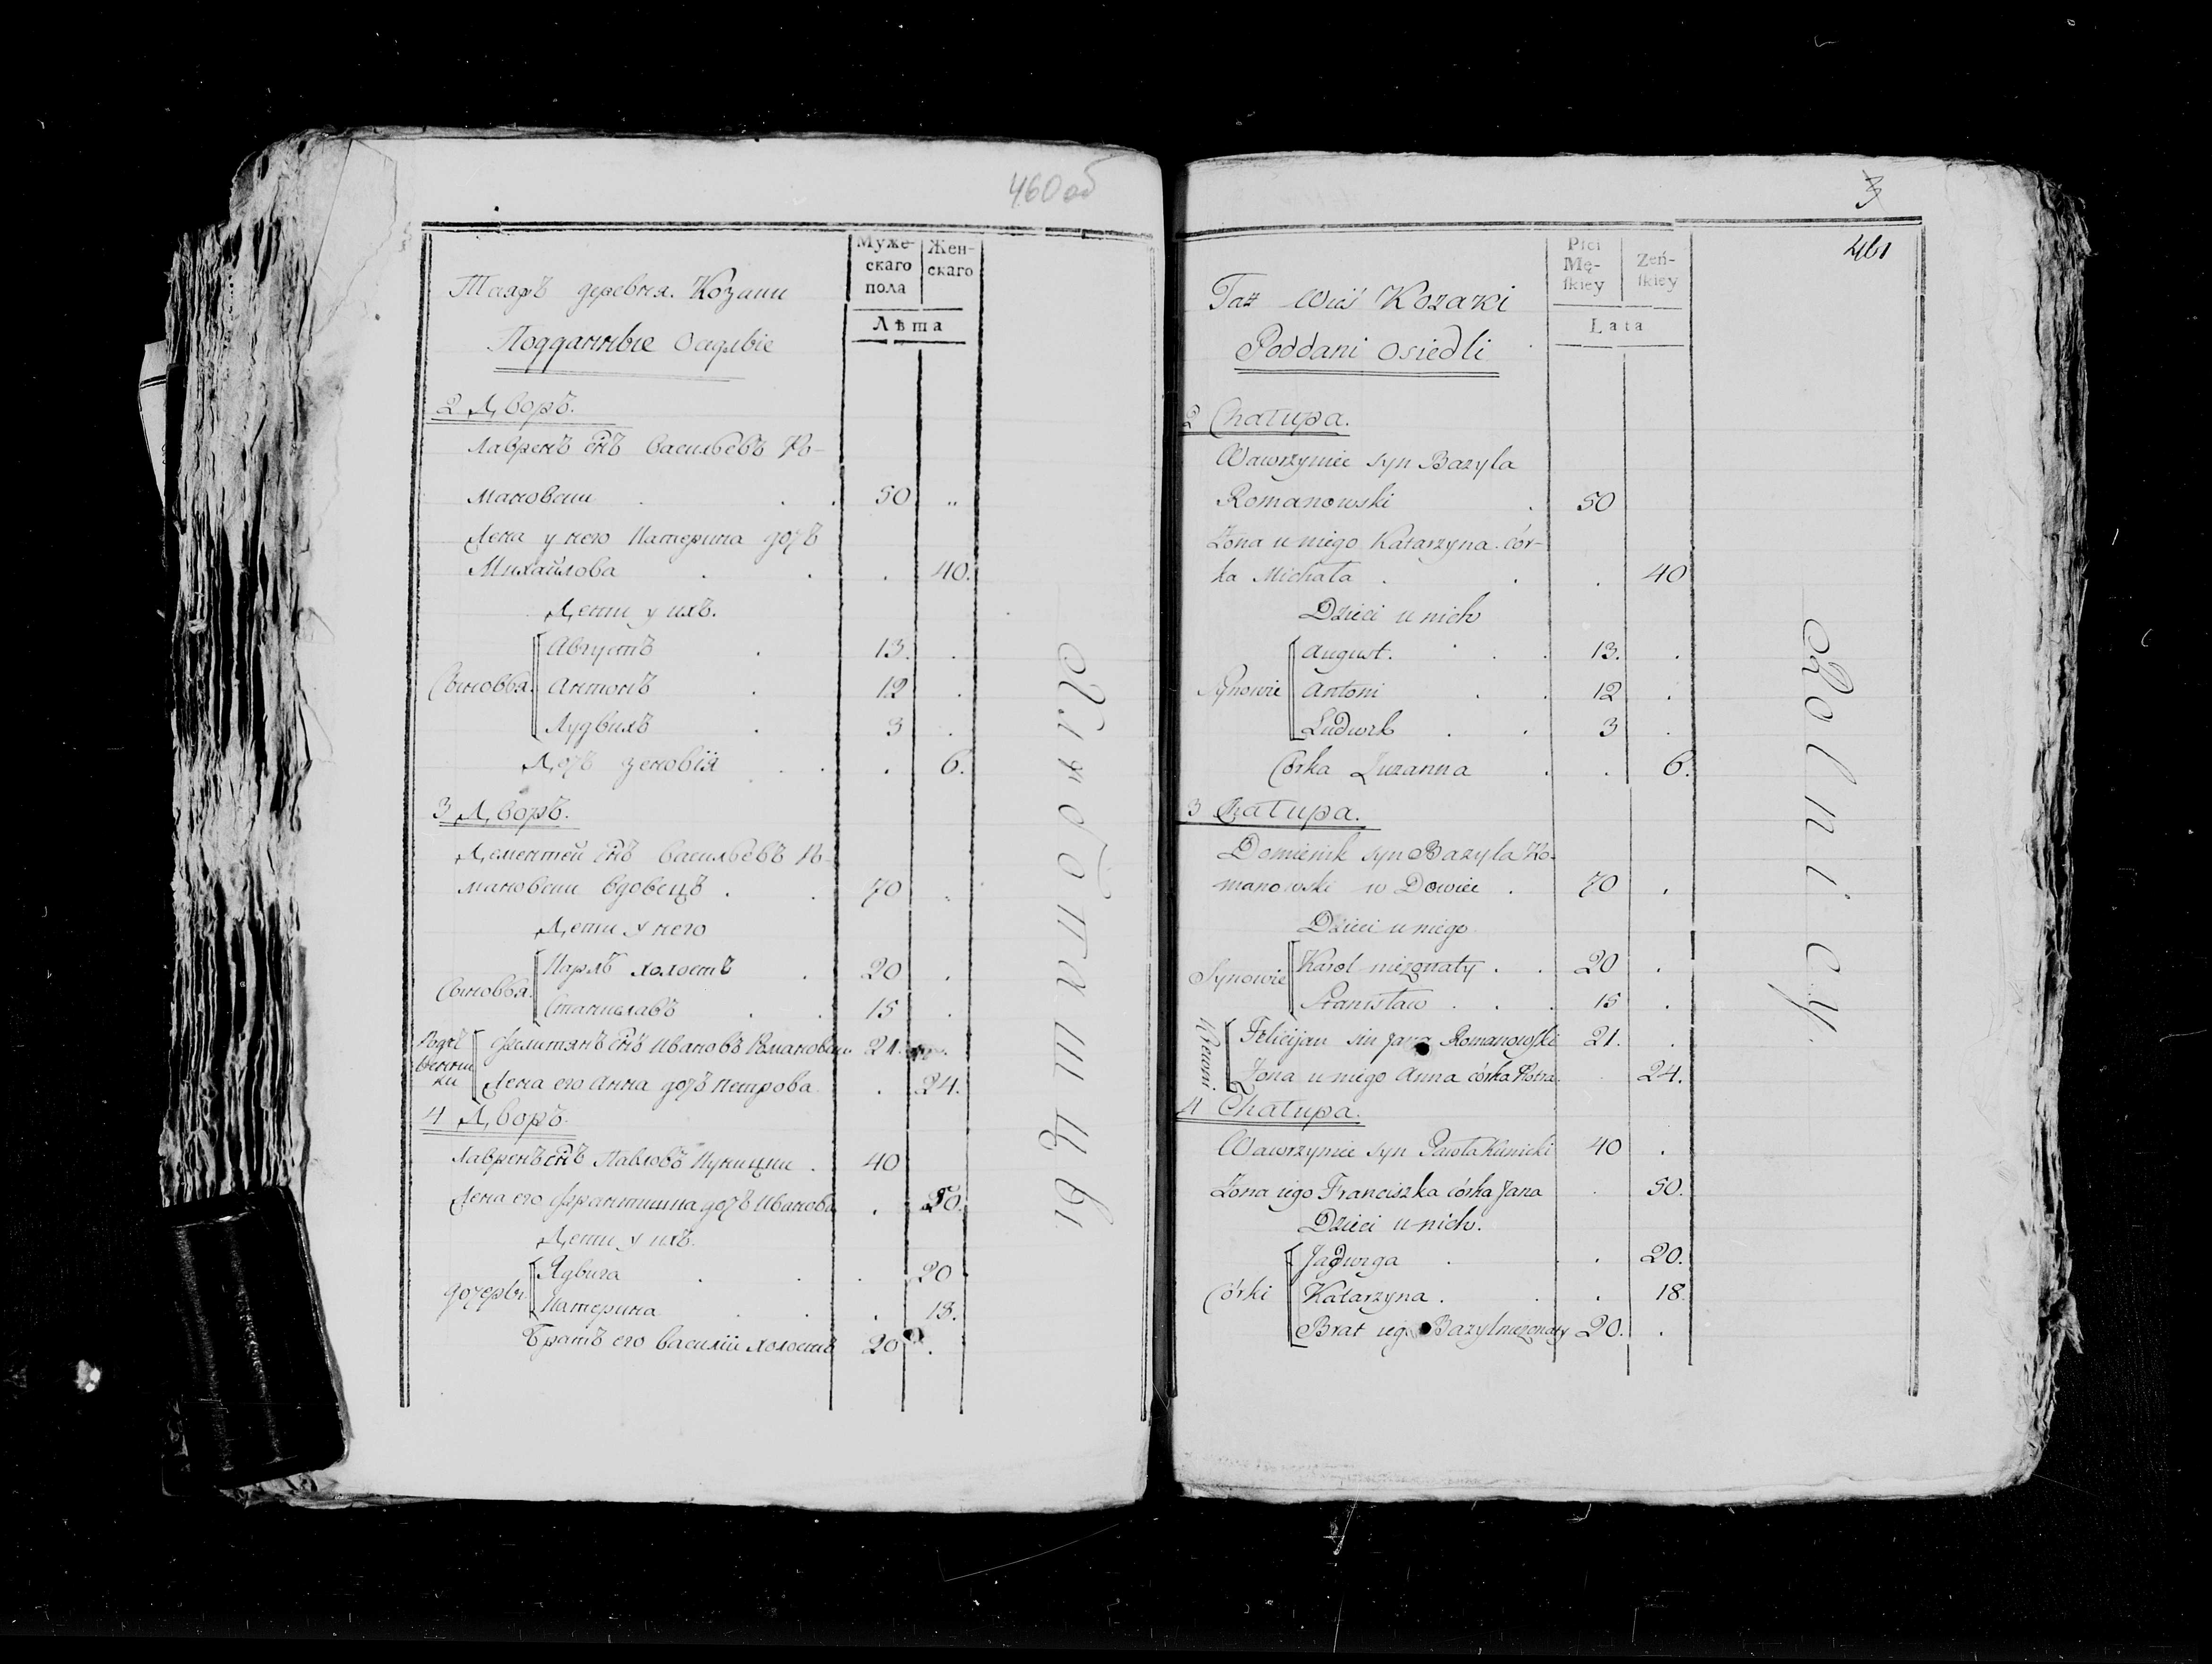 460 об
Таяжъ деревня. Козаки
Подданные Оседлые
Муже-
скаго
пола
Жен-
скаго
Лѣта
2 Дворъ.
Лавренъ снъ Васильевъ Ро-
мановски . . . 50 ..
Жена у него Катерина дочь
Михайлова . . . 40.
Дети у ихъ.
Сыновья
Августъ . 13. .
Антонъ . 12 .
Лудвихъ . 3 .
Дочь Зеновія . . . 6.
3 Дворъ.
Дементей снъ Васильевъ Ро-
мановски вдовецъ . . 70 ..
Дети у него
Сыновья.
Карлъ холостъ . 20 .
Станиславъ . . 15 .
Родст
венни
ки
Фелитянъ снъ Ивановъ Романовски 21. .
Жена его Анна дочь Петрова . 24.
4 Дворъ.
Лавренъ снъ Павловъ Куницки . 40
Жена его Франтишка дочь Иванова . 50.
Дети у ихъ.
дочери
Ядвига . . . 20
Катерина . . . 18.
Братъ его Василій холостъ 20 .
Работницы.
3
461
Taż Wieś Kozaki
Poddani Osiedli
Płci
Mę-
ſkiey
Żeń-
ſkiey
Lata
2 Chałupa.
Wawrzyniec syn Bazyla
Romanowski . 50
Żona u niego Katarzyna cór-
ka Michała . . . 40
Dzieci u nich
Synowie
August. . . . 13. .
Antoni . . 12 .
Ludwik . . 3 .
Córka Zuzanna . . 6.
3 Chałupa.
Domienik syn Bazyla Ro-
manowski w Dowiec . 70 .
Dzieci u niego
Synowie
Karol niezonaty . . 20 .
Stanisław . . . 15 .
Krewni
Felicijan sin Jana Romanowſki 21. .
Żona u niego Anna córka Piotra. 24.
4 Chałupa.
Wawrzyniec syn Pawła Kunicki 40 .
Żona iego Franciszka córka Jana . 50.
Dzieci u nich.
Córki
Jadwiga . . . 20.
Katarzyna . . . 18.
Brat iego Bazyl niezonaty 20. .
Rolnicy.